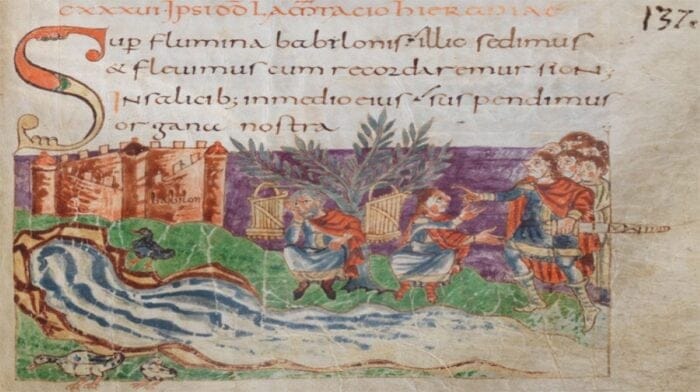 CXXXVI IPSI DD
137.
Sup flumina babilonis illic sedimus
& flevimus cum recordaremur sion;
In salicib; in medio eius suspendimus
organa nostra
babilon